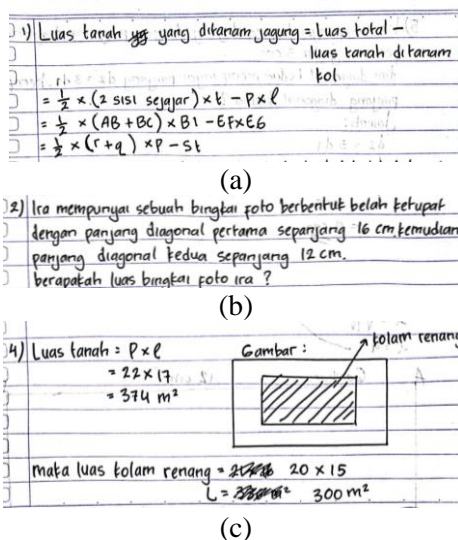 1) Luas tanah yang ditanam jagung = Luas total -
luas tanah ditanam
kol
= 1/2 × (2 sisi sejajar) × t - P × l
= 1/2 × (AB + BC) × BI - EF × EG
= 1/2 × (r + q) × P - st
(a)
2) Ira mempunyai sebuah bingkai foto berbentuk belah ketupat
dengan panjang diagonal pertama sepanjang 16 cm, kemudian
panjang diagonal kedua sepanjang 12 cm.
berapakah luas bingkai foto ira ?
(b)
4) Luas tanah = P × l
= 22 × 17
= 374 m²
Gambar :
kolam renang
maka luas kolam renang = 20 × 15
L = 300 m²
(c)